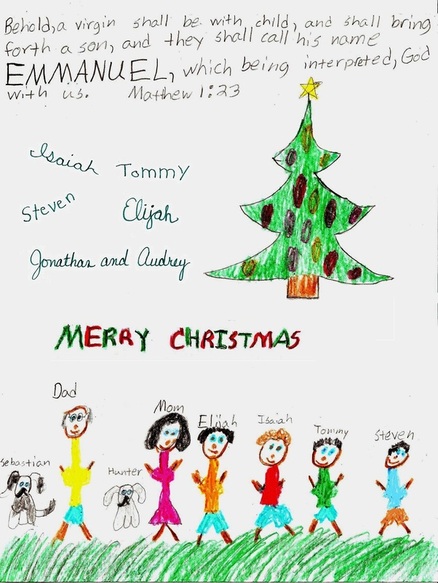 Behold, a virgin shall be with child, and shall bring
forth a son, and they shall call his name
EMMANUEL, which being interpreted, God
with us. Matthew 1:23
Isaiah Tommy
Steven Elijah
Jonathan and Audrey
MERRY CHRISTMAS
Dad
Mom Elijah Isaiah Tommy Steven
Sebastian Hunter